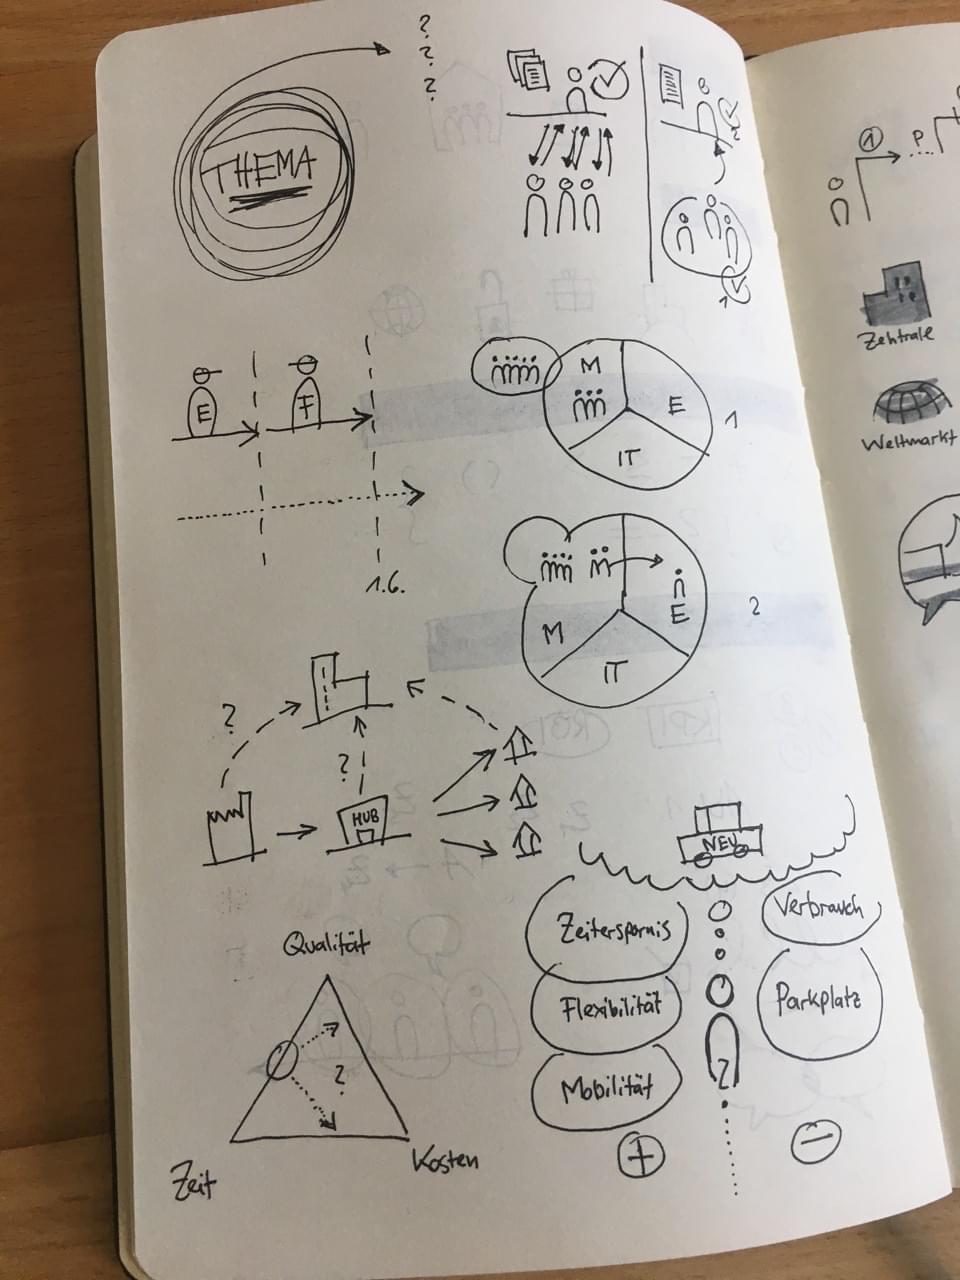 ?
?
?
THEMA
2
1
E
F
1.6.
M
E
IT
1
M
E
IT
2
?
?
HUB
NEU
Qualität
?
Zeit
Kosten
Zeiterspornis
Flexibilität
Mobilität
+
Verbrauch
Parkplatz
−
?
1
P
...
Zentrale
Weltmarkt